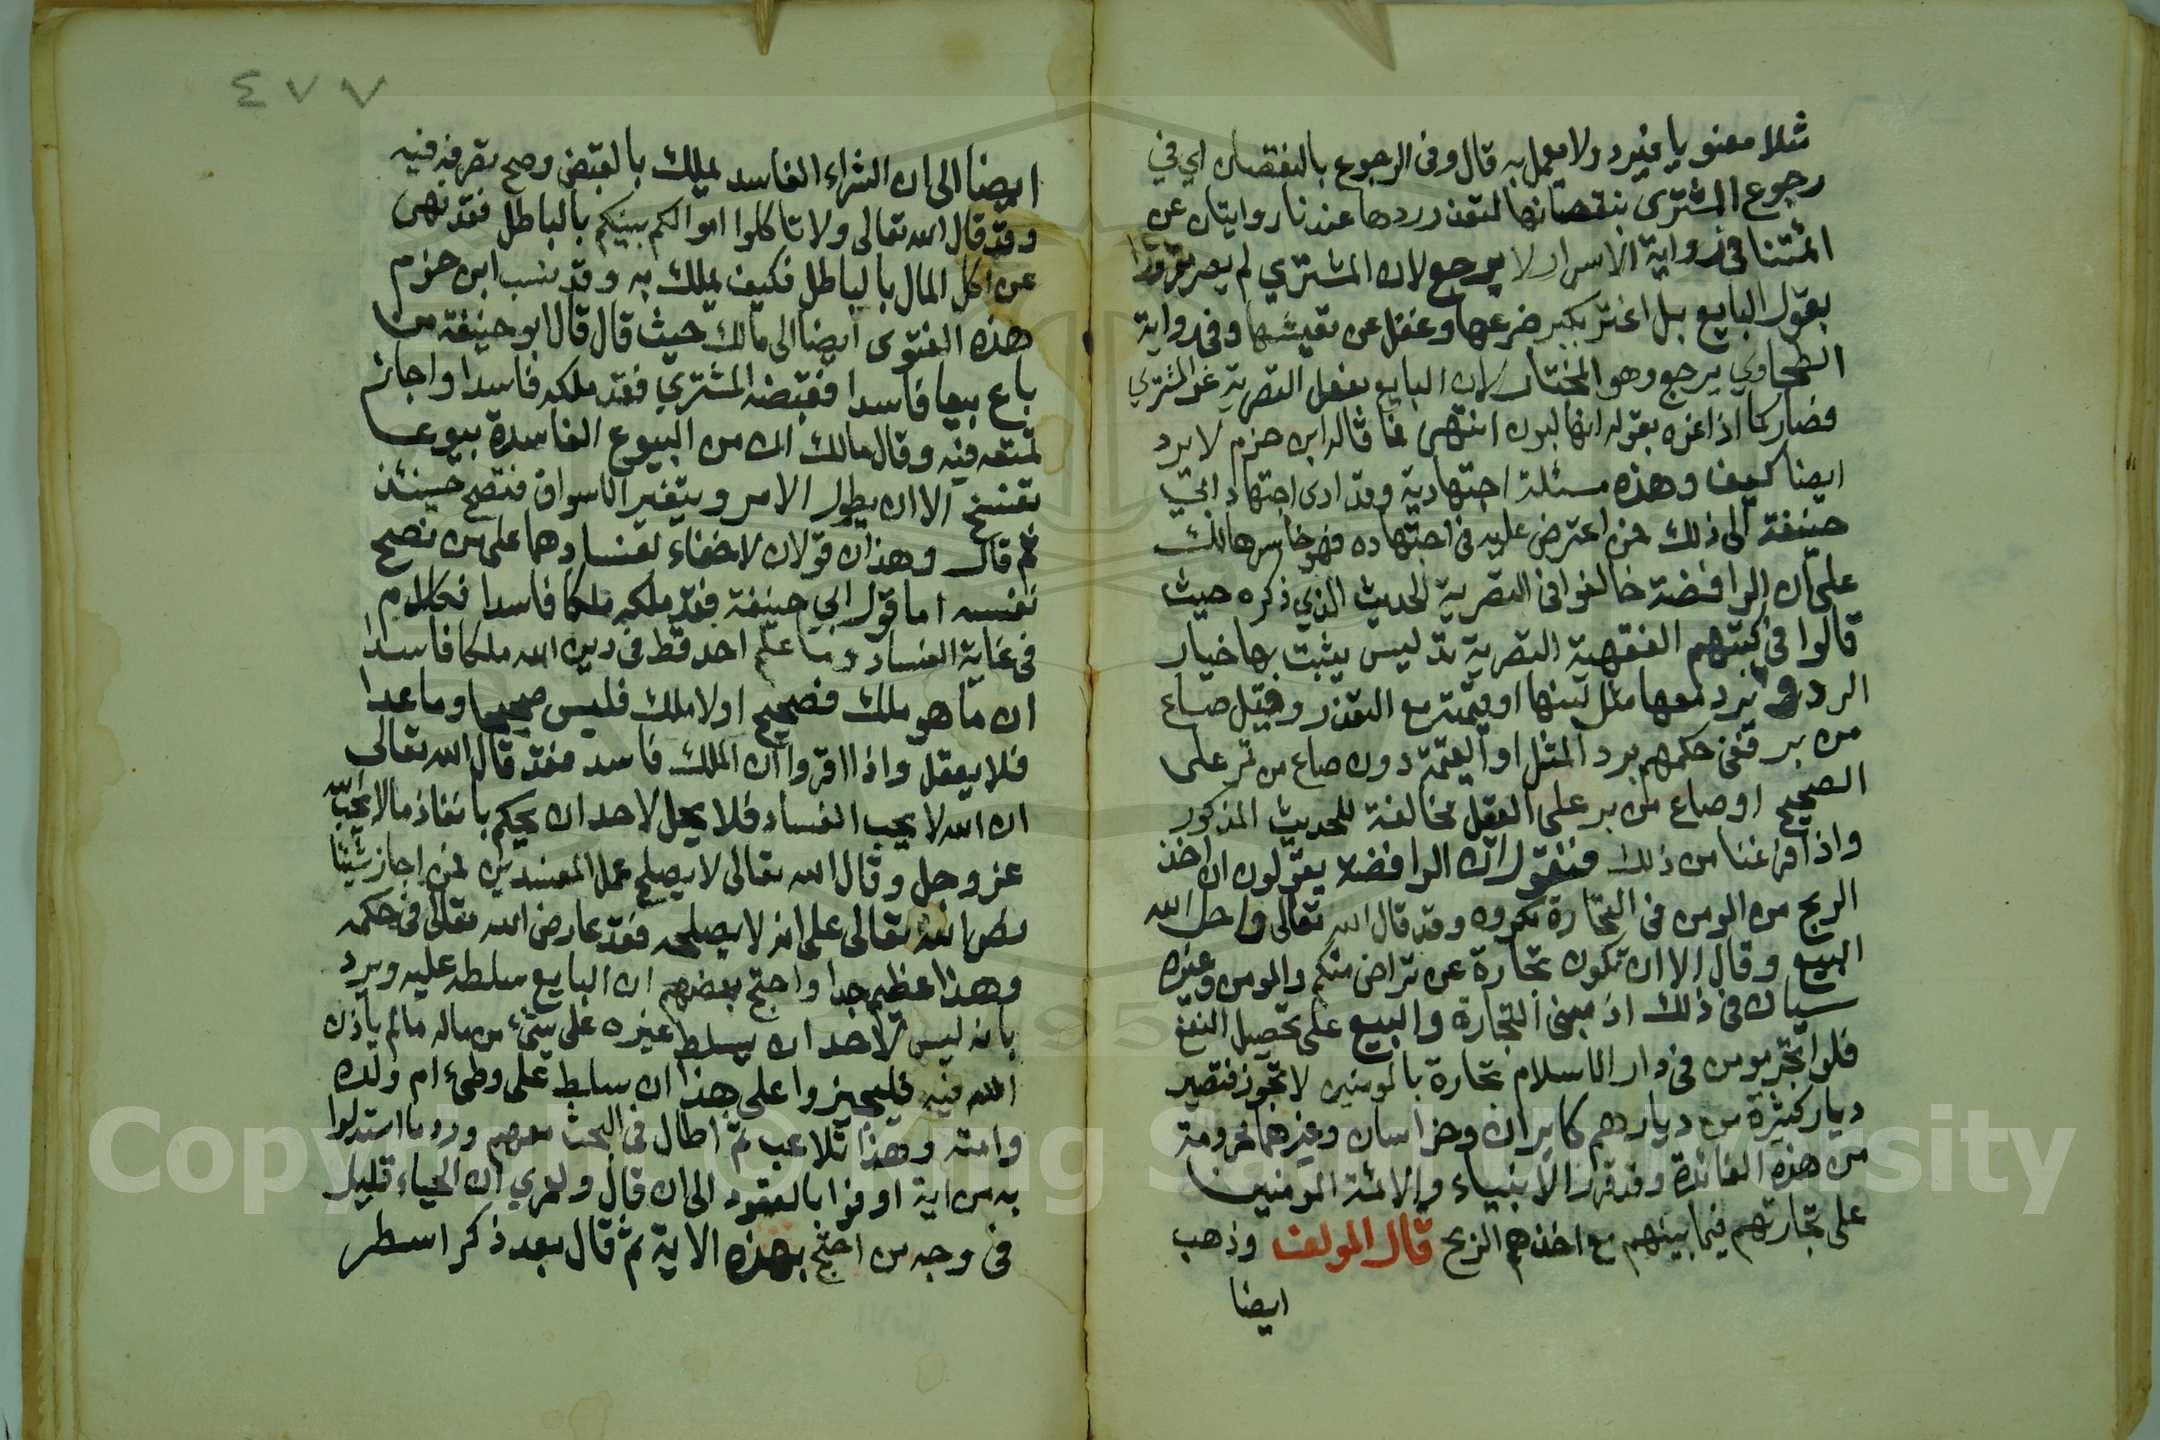 مثلا معنويا غيره ولا معمل به قال وفى الرجوع بالنقصان اي في
رجوع المشترى بنقصانها لتعذر ردها عندنا روايتان عن
ائمتنا فى رواية الاسرار لا يرجع لان المشتري لم يصر مغرورا
بقول البايع بل اغتر بكبر ضرعها وغفل عن تفتيشها وفى رواية
الطحاوي يرجع وهو المختار لان البايع بفعل التصرية غر المشتري
فصار كما اذا غره بقوله انها لبون انتهى فما قاله ابن حزم لا يرد
ايضا كيف وهذه مسئلة اجتهادية وقد ادى اجتهاد ابي
حنيفة الى ذلك فمن اعترض عليه فى اجتهاده فهو خاسر هالك
على ان الرافضة خالفوا فى التصرية الحديث الذي ذكره حيث
قالوا فى كتبهم الفقهية التصرية تدليس يثبت بها خيار
الرد ويرد معها مثل لبنها او قيمته مع التعذر وقيل صاع
من بر ففى حكمهم برد المثل او القيمة دون صاع من تمر على
الصحيح او صاع من بر على القيل مخالفة للحديث المذكور
واذا فرغنا من ذلك فنقول ان الرافضة يقولون ان اخذ
الربح من المومن فى التجارة مكروه وقد قال الله تعالى واحل الله
البيع وقال الا ان تكون تجارة عن تراض منكم والمومن وغيره
سيان فى ذلك اذ مبنى التجارة والبيع على تحصيل النفع
فلو اتجر مومن فى دار الاسلام تجارة بالمومنين لا تجوز فتصير
ديار كثيرة من ديارهم كايران وخراسان وغيرهما محرومة
من هذه الفائدة وقد قرر الانبياء والائمة المومنين
على تجارتهم فيما بينهم مع اخذهم الربح قال المولف وذهب
ايضا
٤٧٧
ايضا الى ان الشراء الفاسد يملك بالقبض وصح تصرفه فيه
وقد قال الله تعالى ولا تاكلوا اموالكم بينكم بالباطل فقد نهى
عن اكل المال بالباطل فكيف يملك به وقد نسب ابن حزم
هذه الفتوى ايضا الى مالك حيث قال قال ابو حنيفة من
باع بيعا فاسدا فقبضه المشتري فقد ملكه فاسدا واجاز
تمتعه فيه وقال مالك ان من البيوع الفاسدة بيوعا
تفسخ الا ان يطول الامر ويتغير الاسواق فتصح حينئذ
ثم قال وهذان قولان لا خفاء لفسادهما على من نصح
نفسه اما قول ابي حنيفة فقد ملكه ملكا فاسدا فكلام
فى غاية الفساد وما علم احد قط فى دين الله ملكا فاسدا
ان ما هو ملك فصحيح او لا ملك فليس صحيحا وما عدا
فلا يعقل واذا اقروا ان الملك فاسد فقد قال الله تعالى
ان الله لا يحب الفساد فلا يحل لاحد ان يحكم بانفاذ ما لا يحبه الله
عز وجل وقال الله تعالى لا يصلح عمل المفسدين فمن اجاز شيئا
نص الله تعالى على انه لا يصلحه فقد عارض الله تعالى فى حكمه
وهذا عظيم جدا واحتج بعضهم ان البايع سلطه عليه ويرد
بانه ليس لاحد ان يسلط غيره على شيء من ماله ما لم ياذن
الله فيه فليجيزوا على هذا ان سلط على وطىء ام ولده
وامته وهذا تلاعب ثم اطال فى البحث معهم ورد ما استدلوا
به من اية اوفوا بالعقود الى ان قال ولعمري ان الحياء قليل
فى وجه من احتج بهذه الاية ثم قال بعد ذكر اسطر
Copyright © King Saud University